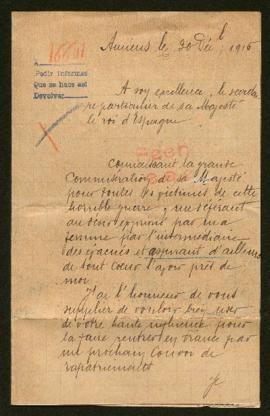 Amiens le 30 Déc 1916
A
Pedir informes
Que se hace así
Devolver
A son excellence, le secrétai
re particulier de sa Majesté
le roi d'Espagne
Connaissant la grande
Commisération de sa Majesté
pour toutes les victimes de cette
horrible guerre, me référant
au désir exprimé par ma
femme par l'intermédiaire
des évacués et aspirant d'ailleurs
de tout cœur l'avoir près de
moi.
J'ai l'honneur de vous
supplier de vouloir bien user
de votre haute influence pour
la faire rentrer en France par
un prochain convoi de
rapatriements
Je